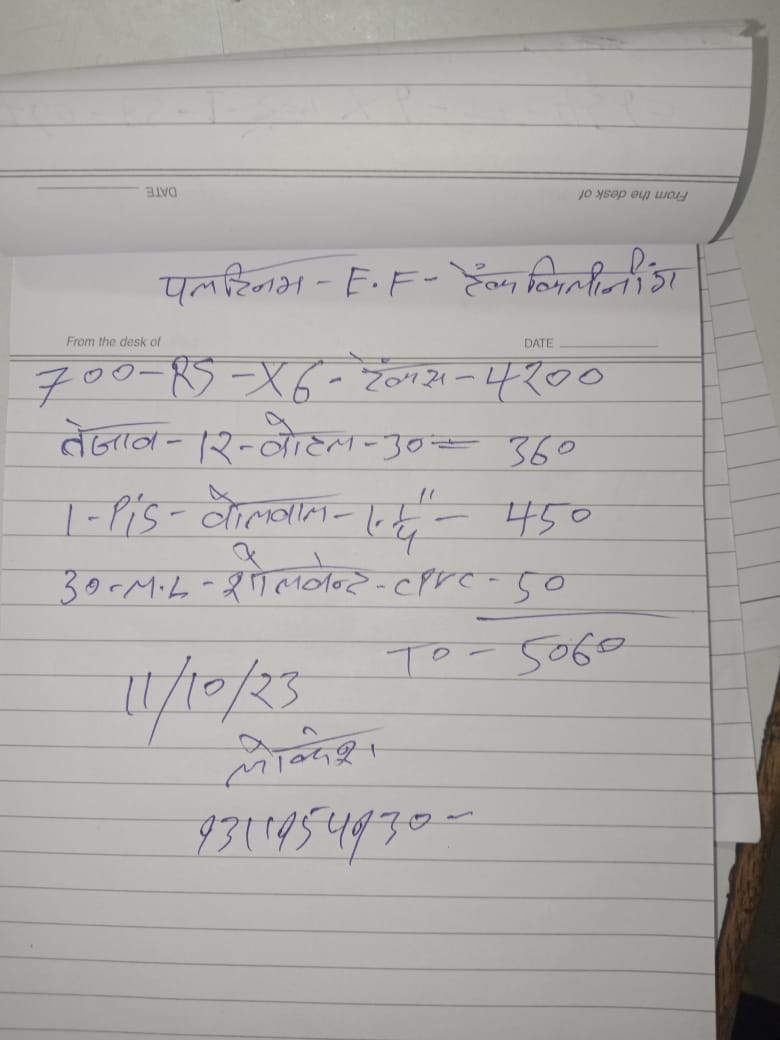 From the desk of
DATE
पलटिनम - E.F - टैंक किलीनींग
From the desk of DATE
700-RS-X6-टैंक्स-4200
तेजाब-12-बोटल-30= 360
1-Pis-बोलवाल-1.1/4"- 450
30-M.L-शोलवेन्ट-CPVC-50
TO-5060
11/10/23
लोकेश
9311954930-